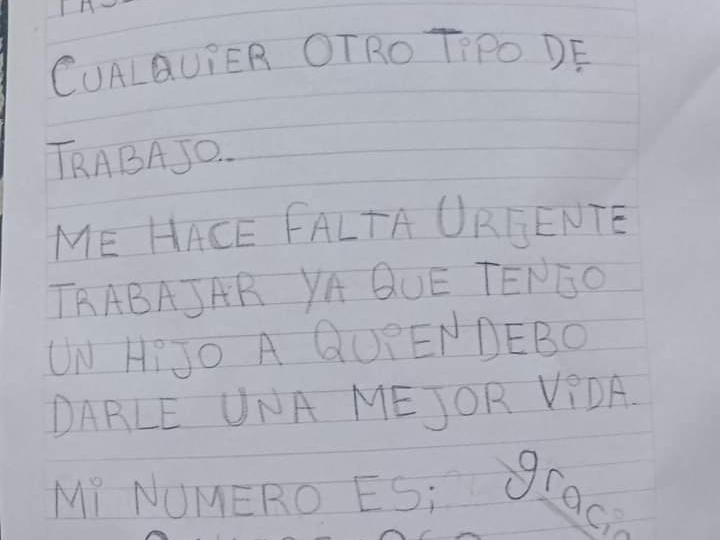 CUALQUIER OTRO TIPO DE
TRABAJO..
ME HACE FALTA URGENTE
TRABAJAR YA QUE TENGO
UN HIJO A QUIEN DEBO
DARLE UNA MEJOR VIDA.
MI NUMERO ES;